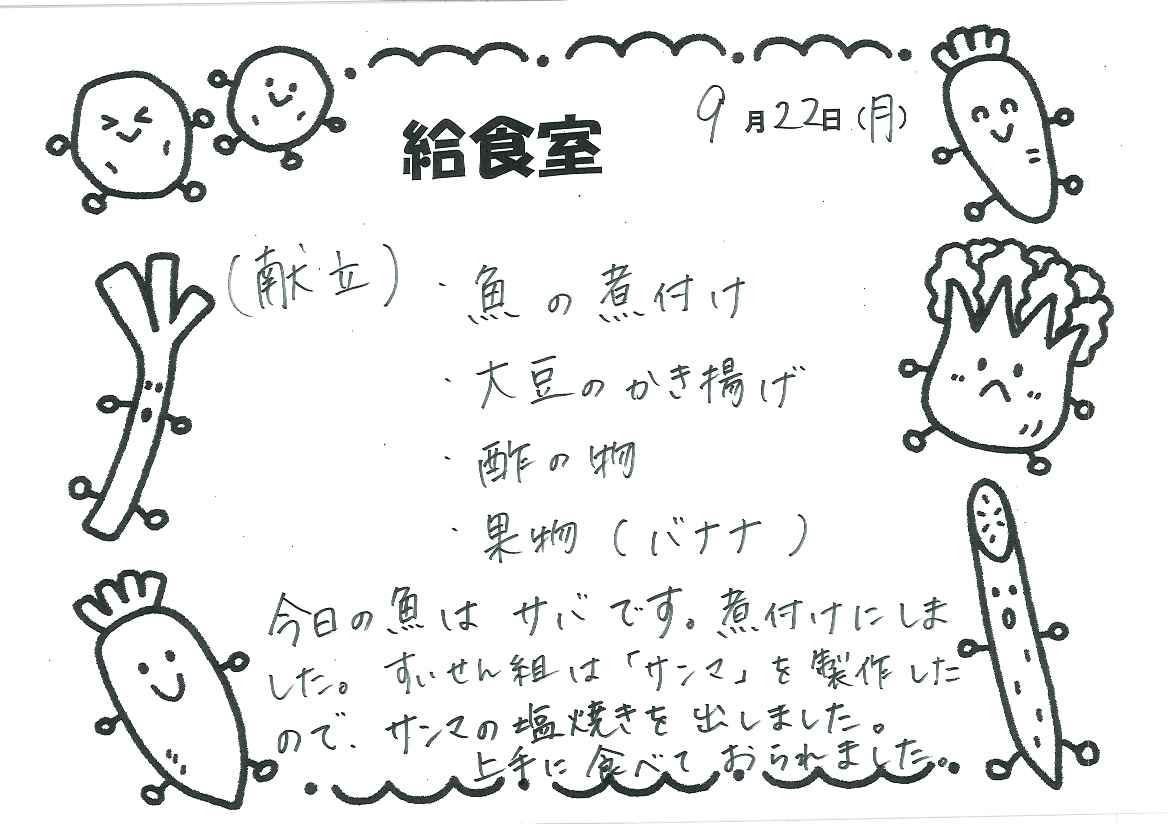 給食室
9月22日(月)
(献立)
・魚の煮付け
・大豆のかき揚げ
・酢の物
・果物(バナナ)
今日の魚は サバです。煮付けにしま
した。すいせん組は「サンマ」を製作した
ので、サンマの塩焼きを出しました。
上手に食べて おられました。